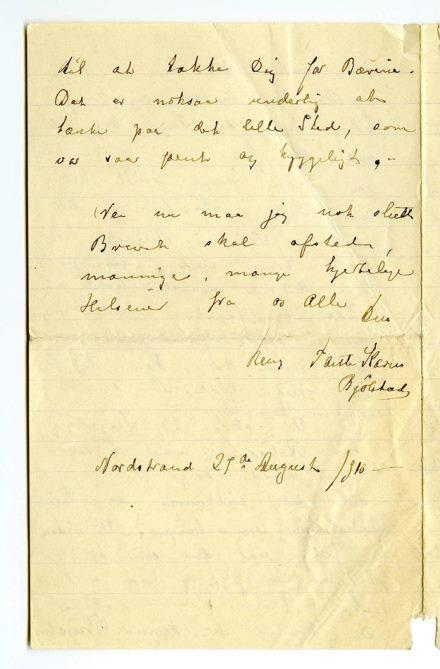 til at takke Dig for Bærene.
Det er noksaa underlig at
tænke paa det lille Sted, som
var saa pent og hyggeligt,-
Nei nu maa jeg nok slutte
Brevet skal afsted,
mange, mange hjertelige
Hilsener fra os Alle
Din
Tante Karen
Bjölstad
Nordstrand 27de August /910